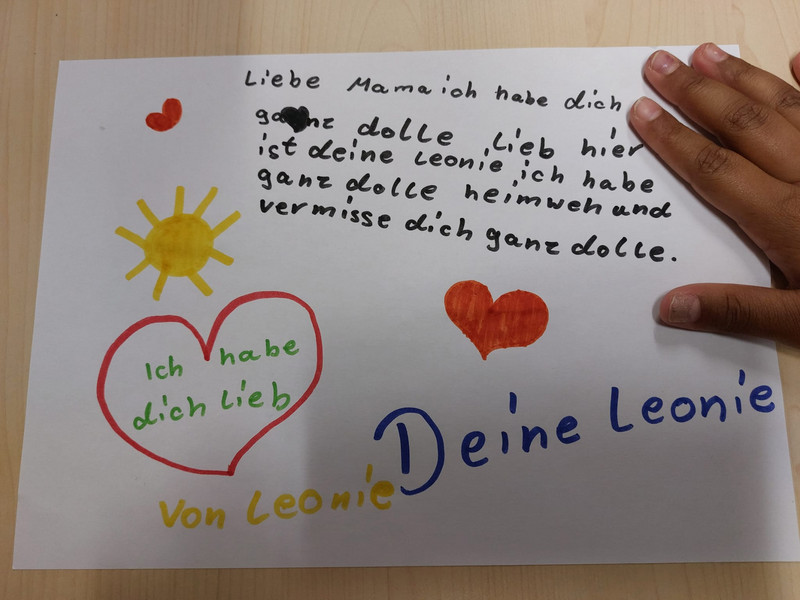 Liebe Mama ich habe dich
ganz dolle lieb hier
ist deine Leonie, ich habe
ganz dolle heimweh und
vermisse dich ganz dolle.
Ich habe
dich Lieb
Deine Leonie
Von Leonie